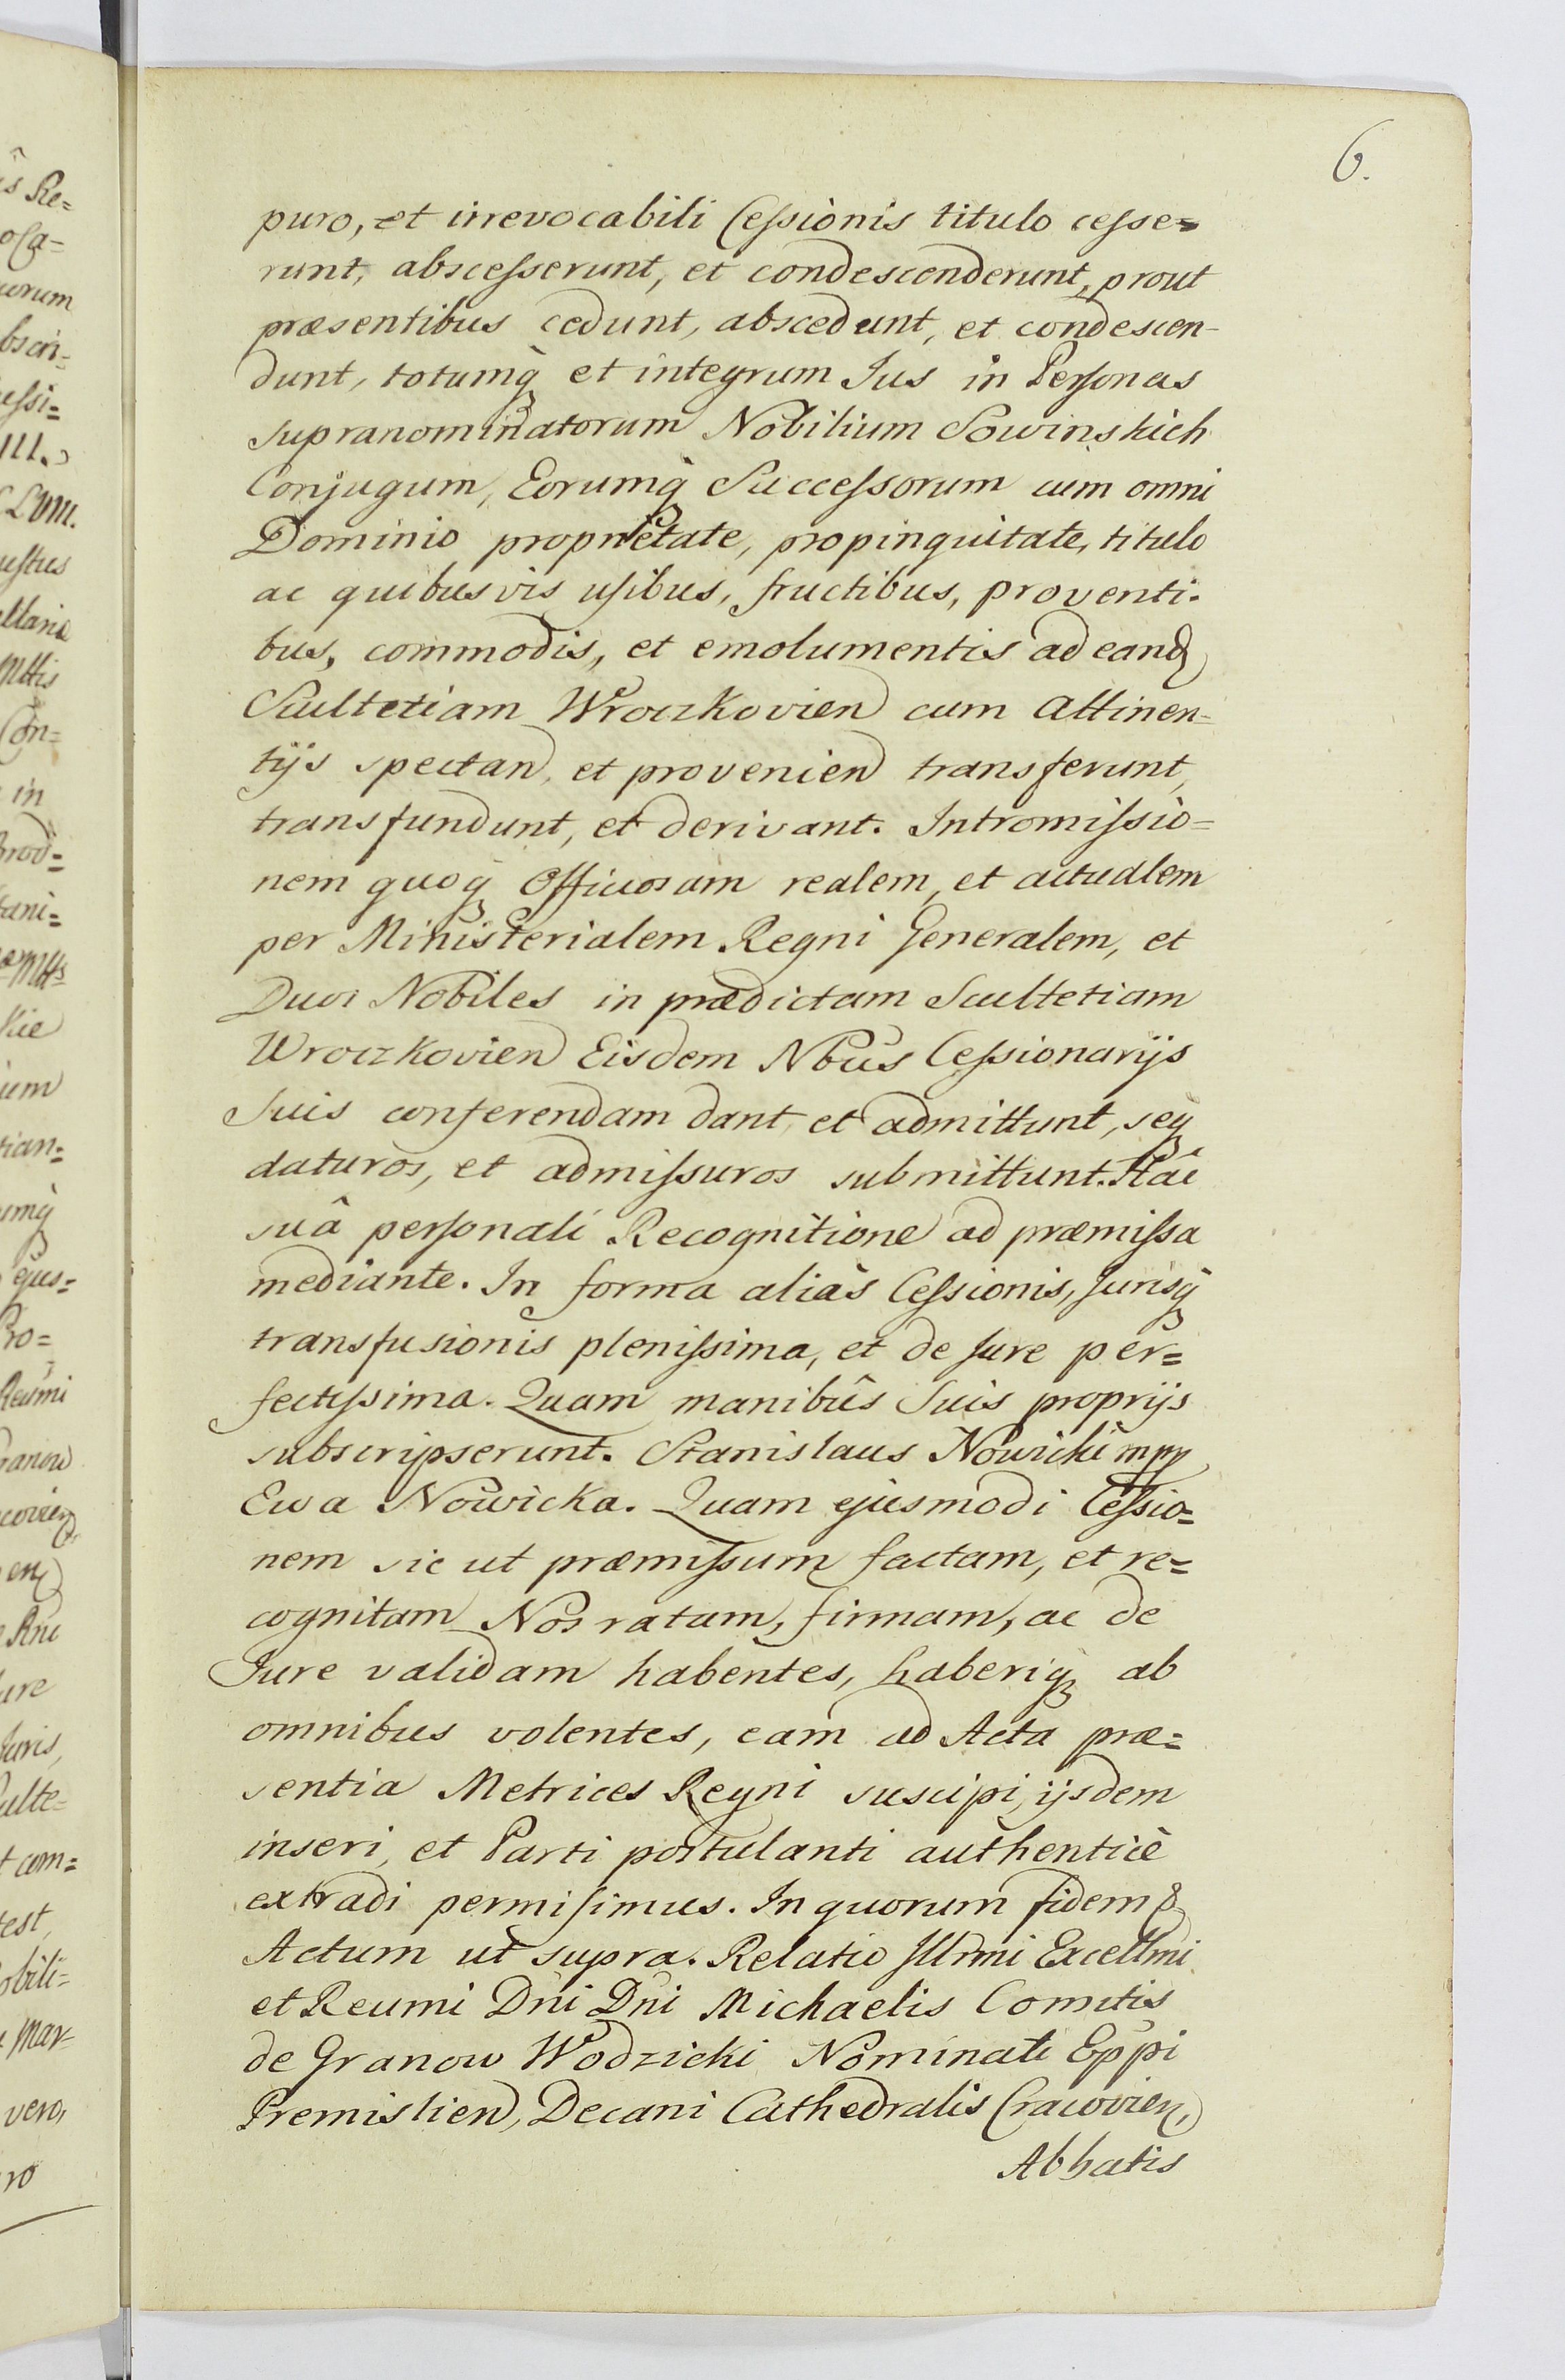 6.
puro, et irrevocabili Cessionis titulo cesse=
runt, abscesserunt, et condescenderunt, prout
præsentibus cedunt, abscedunt, et condescen-
dunt, totumq̀ et integrum Jus in Personas
supranominatorum Nobilium Sowinskich
Conjugum, Eorumq̀ Successorum cum omni
Dominio proprietate, propinquitate, titulo
ac quibusvis usibus, fructibus, proventi-
bus, commodis, et emolumentis ad eand
Scultetiam Wroczkovien cum attinen-
tijs spectan, et provenien transferunt,
transfundunt, et derivant. Intromissio=
nem quoq̀ Officiosam realem, et actualem
per Ministerialem Regni Generalem, et
Duos Nobiles in prædictam Scultetiam
Wroczkovien Eisdem Nbus Cessionarijs
suis conferendam dant, et admittunt, seq̀
daturos, et admissuros submittunt. Hâc
suâ personali Recognitione ad præmissa
mediante. In forma aliàs Cessionis, Jurisq̀
transfusionis plenissima, et de Jure per=
fectissima. Quam manibûs Suis proprijs
subscripserunt. Stanislaus Nowicki mpp
Ewa Nowicka. Quam ejusmodi Cessio=
nem sic ut præmissum factam, et re=
cognitam Nos ratam, firmam, ac de
Jure validam habentes, haberiq̀ ab
omnibus volentes, eam ad Acta præ=
sentia Metrices Regni suscipi, ijsdem
inseri, et Parti postulanti authenticè
extradi permisimus. In quorum fidem &
Actum ut supra. Relatio Illrmi Excellmi
et Reumi Dni Dni Michaelis Comitis
de Granow Wodzicki Nominati Eppi
Premislien, Decani Cathedralis Cracovien,
Abbatis